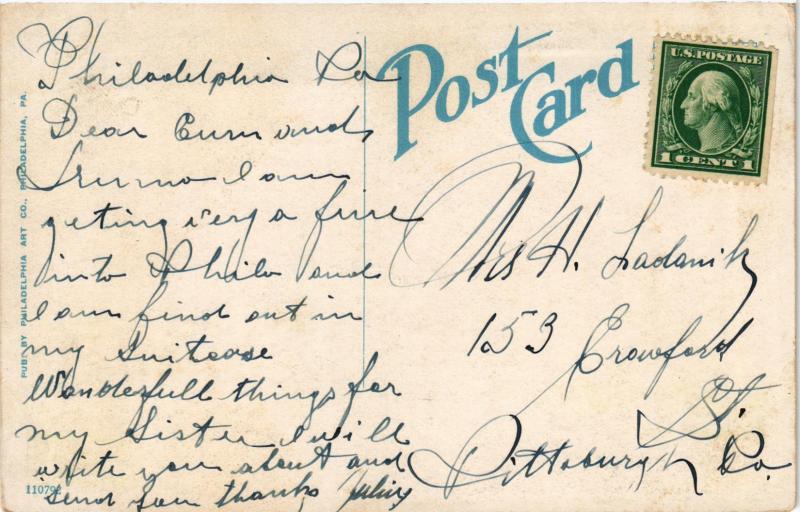 Philadelphia Pa
Dear
and
I am
geting very a fine
into Phila and
I am find out in
my Suitcase
Wonderfull things for
my Sister I will
write you about and
send you thanks
PUB. BY PHILADELPHIA ART CO., PHILADELPHIA, PA.
110792
Post Card
U.S. POSTAGE
1 CENT 1
Mrs H. Ladanik
153
Crowford
St.
Pittsburgh Pa.